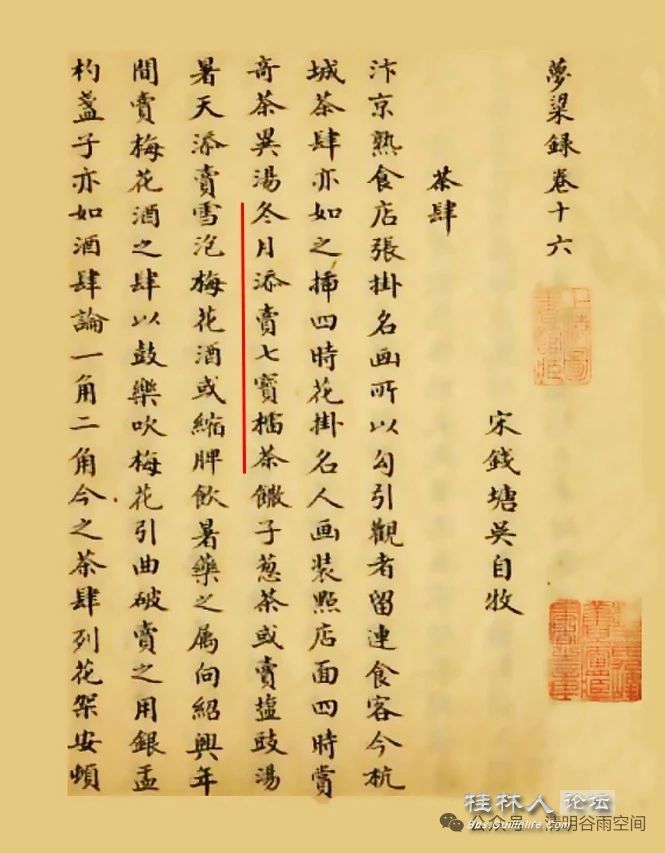 夢粱録卷十六
宋錢塘吳自牧
茶肆
汴京熟食店張掛名画所以勾引觀者留連食客今杭
城茶肆亦如之揷四時花掛名人画装點店面四時賣
竒茶異湯冬月添賣七寳擂茶饊子葱茶或賣塩豉湯
暑天添賣雪泡梅花酒或縮脾飲暑藥之属向紹興年
間賣梅花酒之肆以鼓樂吹梅花引曲破賣之用銀盂
杓盞子亦如酒肆論一角二角今之茶肆列花架安頓
桂林人论坛
公众号·清明谷雨空间